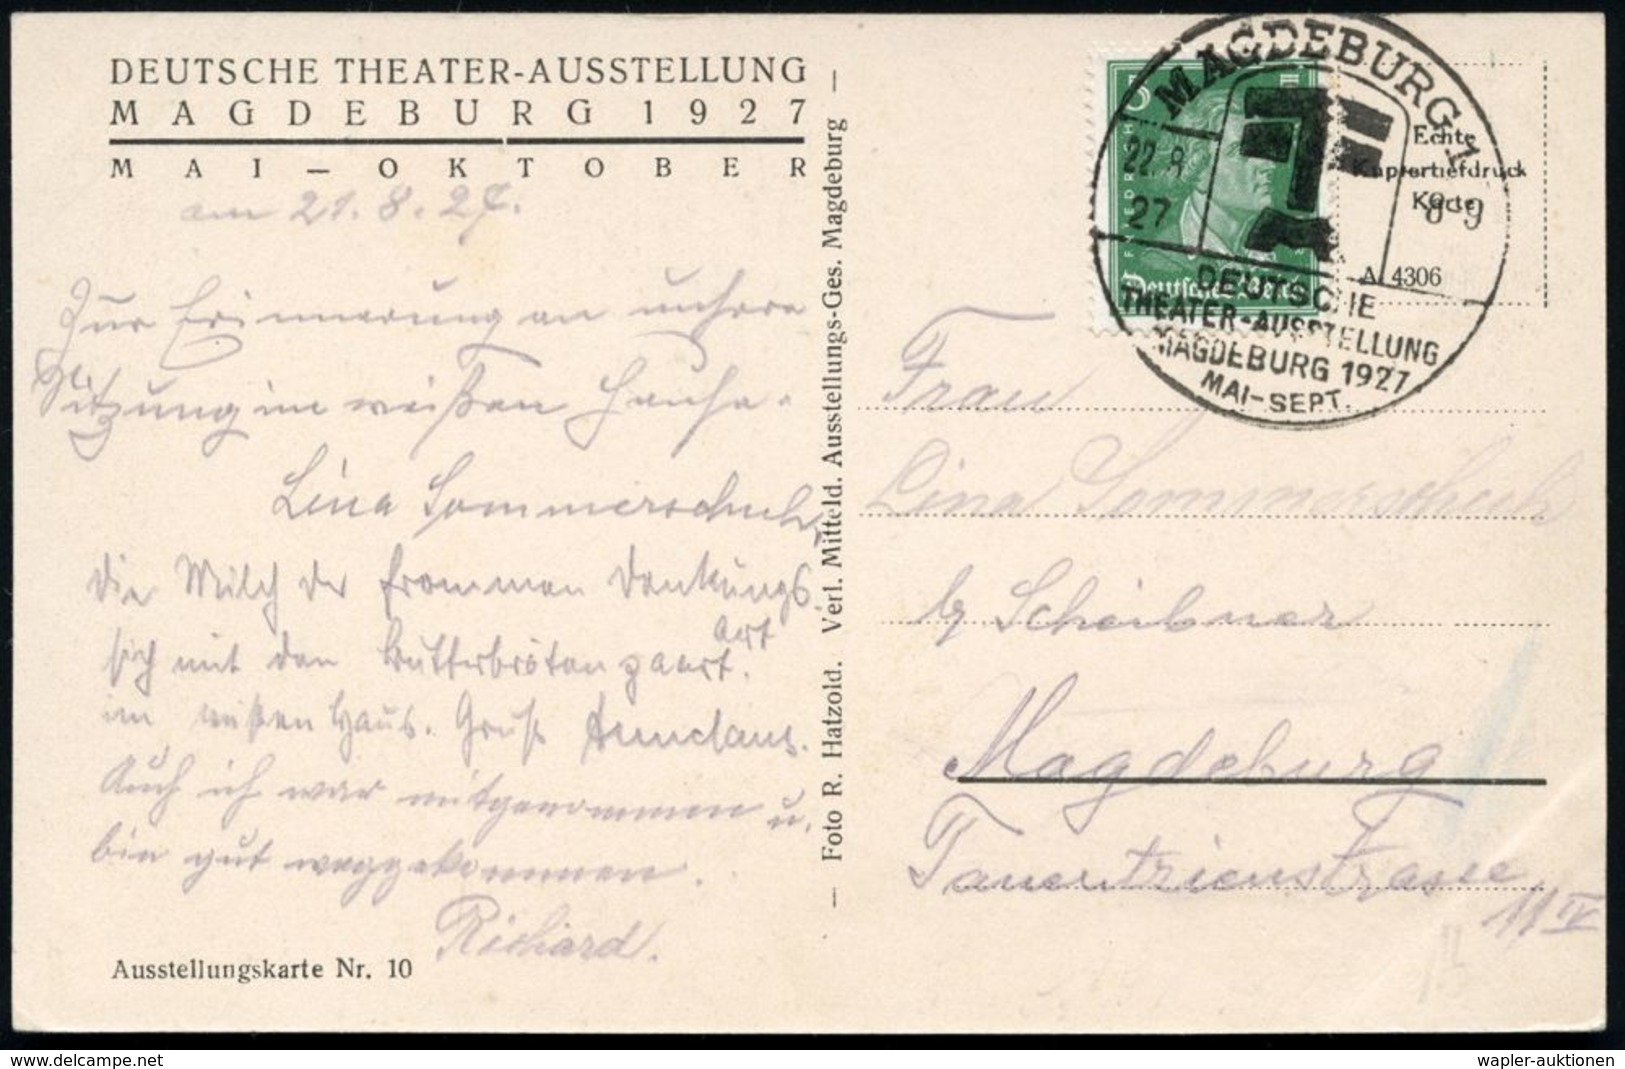 DEUTSCHE THEATER-AUSSTELLUNG
MAGDEBURG 1927
MAI – OKTOBER
am 21.8.27.
Zur Erinnerung an unsere
Sitzung im weißen Hause.
Lina Sommerschuh
Die Milch der frommen Denkungs
art
sich mit den Butterbröten paart.
im weißen Haus. Gruß
Auch ich war mitgenommen u.
bin gut weggekommen.
Richard.
Ausstellungskarte Nr. 10
— Foto R. Hatzold. Verl. Mitteld. Ausstellungs-Ges. Magdeburg —
MAGDEBURG 1
22.8.
27
8-9
DEUTSCHE
THEATER-AUSSTELLUNG
MAGDEBURG 1927
MAI-SEPT.
Deutsches Reich
Echte
Kupfertiefdruck
Karte
A 4306
Frau
Lina Sommerschuh
b/ Scheibner
Magdeburg
Tauentzienstrasse
11 IV
© delcampe.net
wapler-auktionen